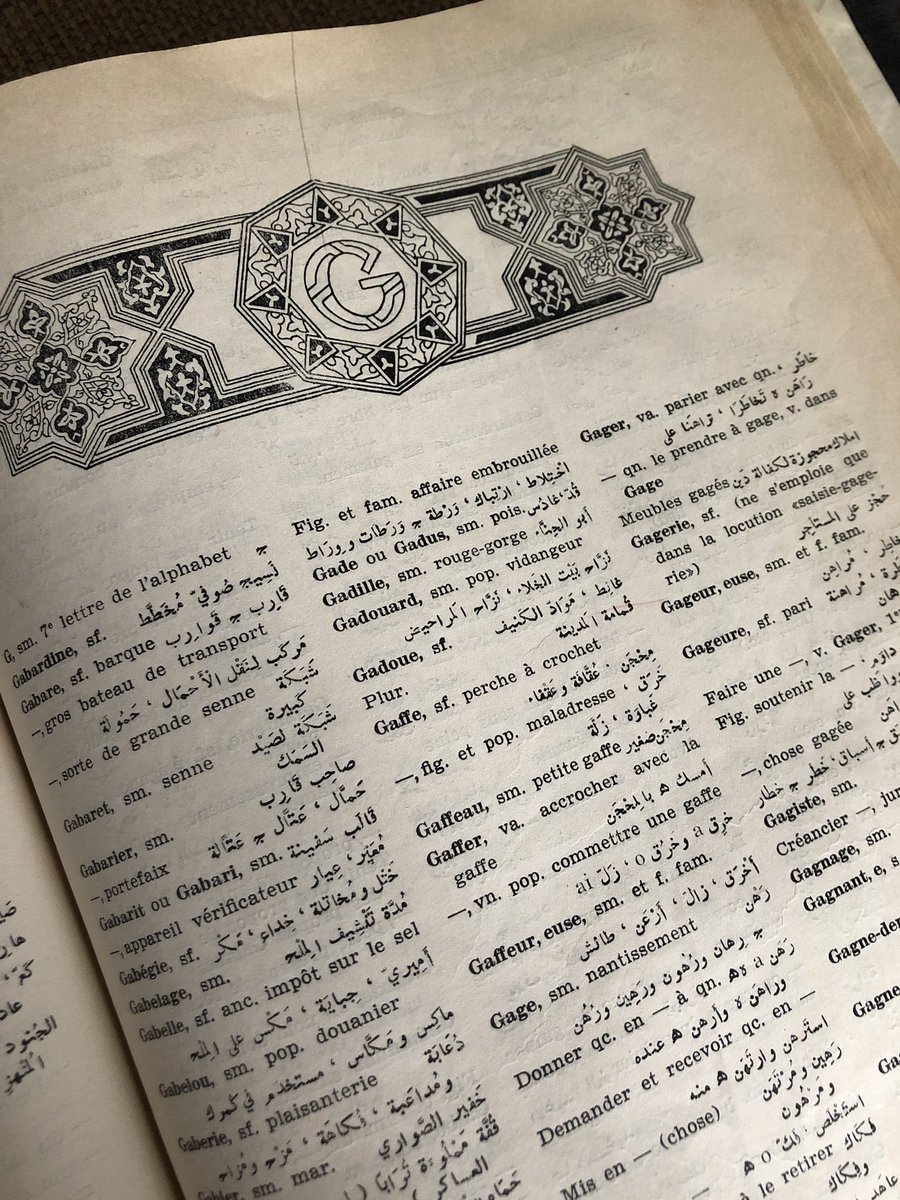 G
G, sm. 7e lettre de l'alphabet
Gabardine, sf. نَسِيج صُوفيّ مُخَطَّط
Gabare, sf. barque قَارِب ج قَوارِب
—, gros bateau de transport
مَركَب لِنَقْل الأَحْمَال ، حَمُولَة
—, sorte de grande senne شَبَكَة
كَبيرة
Gabaret, sm. senne شَبَكَة لصَيْد
السَمَك
Gabarier, sm. صاحِب قَارِب
—, portefaix حَمَّال ، عَتَّال ج عَتَّالة
Gabarit ou Gabari, sm. قالَب سَفِينَة
—, appareil vérificateur مُعَيِّر، عِيار
Gabégie, sf. خَتْل و مُخاتَلة ، خِداع ، مَكْر
Gabelage, sm. مُدَّة تَنْشِيف المِلْح
Gabelle, sf. anc. impôt sur le sel
أَمِيريّ ، جِبايَة ، مَكْس على المِلْح
Gabelou, sm. pop. douanier
ماكِس و مَكَّاس ، مستخدَم في كمرك
Gaberie, sf. plaisanterie دُعَابَة
و مُداعَبة ، فُكاهَة ، مَزْح و مُزاح
Gabier, sm. mar. خَفِير الصَّواري
قُفَّة مَمْلُوءَة تُرَابًا
Fig. et fam. affaire embrouillée
اخْتِلاط ، ارْتِباك ، وَرْطَة ج وَرَطات و وِرَاط
Gade ou Gadus, sm. pois. قُدّ، غادُس
Gadille, sm. rouge-gorge أَبو الحِنَّاء
Gadouard, sm. pop. vidangeur
نَزَّاح بَيْت الخَلاء ، نَزَّاح المَراحيض
Gadoue, sf. غائِط ، مَوَادّ الكَنيف
Plur. قُمامَة المَدينَة
Gaffe, sf. perche à crochet
مِحْجَن ، عُقَّافَة و عَقْفاء
—, fig. et pop. maladresse خَرَق ،
غَبَاوَة ، زَلَّة
Gaffeau, sm. petite gaffe مِحْجَن صغير
Gaffer, va. accrocher avec la
gaffe أَمسك ه بالمِحْجَن
—, vn. pop. commettre une gaffe
خرِق a و خرُق o ، زَلّ ai
Gaffeur, euse, sm. et f. fam.
أَخْرَق ، زالّ ، أَرْعَن ، طائش
Gage, sm. nantissement رَهْن
ج رِهان و رُهُون و رَهِين و رُهُن
Donner qc. en — à qn. رَهَن a ه ه
و راهَن ه و أَرهن ه عنده
Demander et recevoir qc. en —
استَرهن و ارتَهَن ه منه
Mis en — (chose) رَهِين و مُرْتَهَن
و مَرْهُون
le retirer
Gager, va. parier avec qn. خاطَر ،
رَاهَن ه تَخاطَرَا ، تراهنَا على
— qn. le prendre à gage, v. dans
Gage
Meubles gagés املاك محجوزة لكفالة دَين
Gagerie, sf. (ne s'emploie que
dans la locution «saisie-gage-
rie») حَجْز على المستأجر
Gageur, euse, sm. et f. fam.
مُخاطر ، مُراهِن
Gageure, sf. pari
Faire une —, v. Gager,
Fig. soutenir la —
—, chose gagée
Gagiste, sm.
Créancier —,
Gagnage, sm.
Gagnant, e,